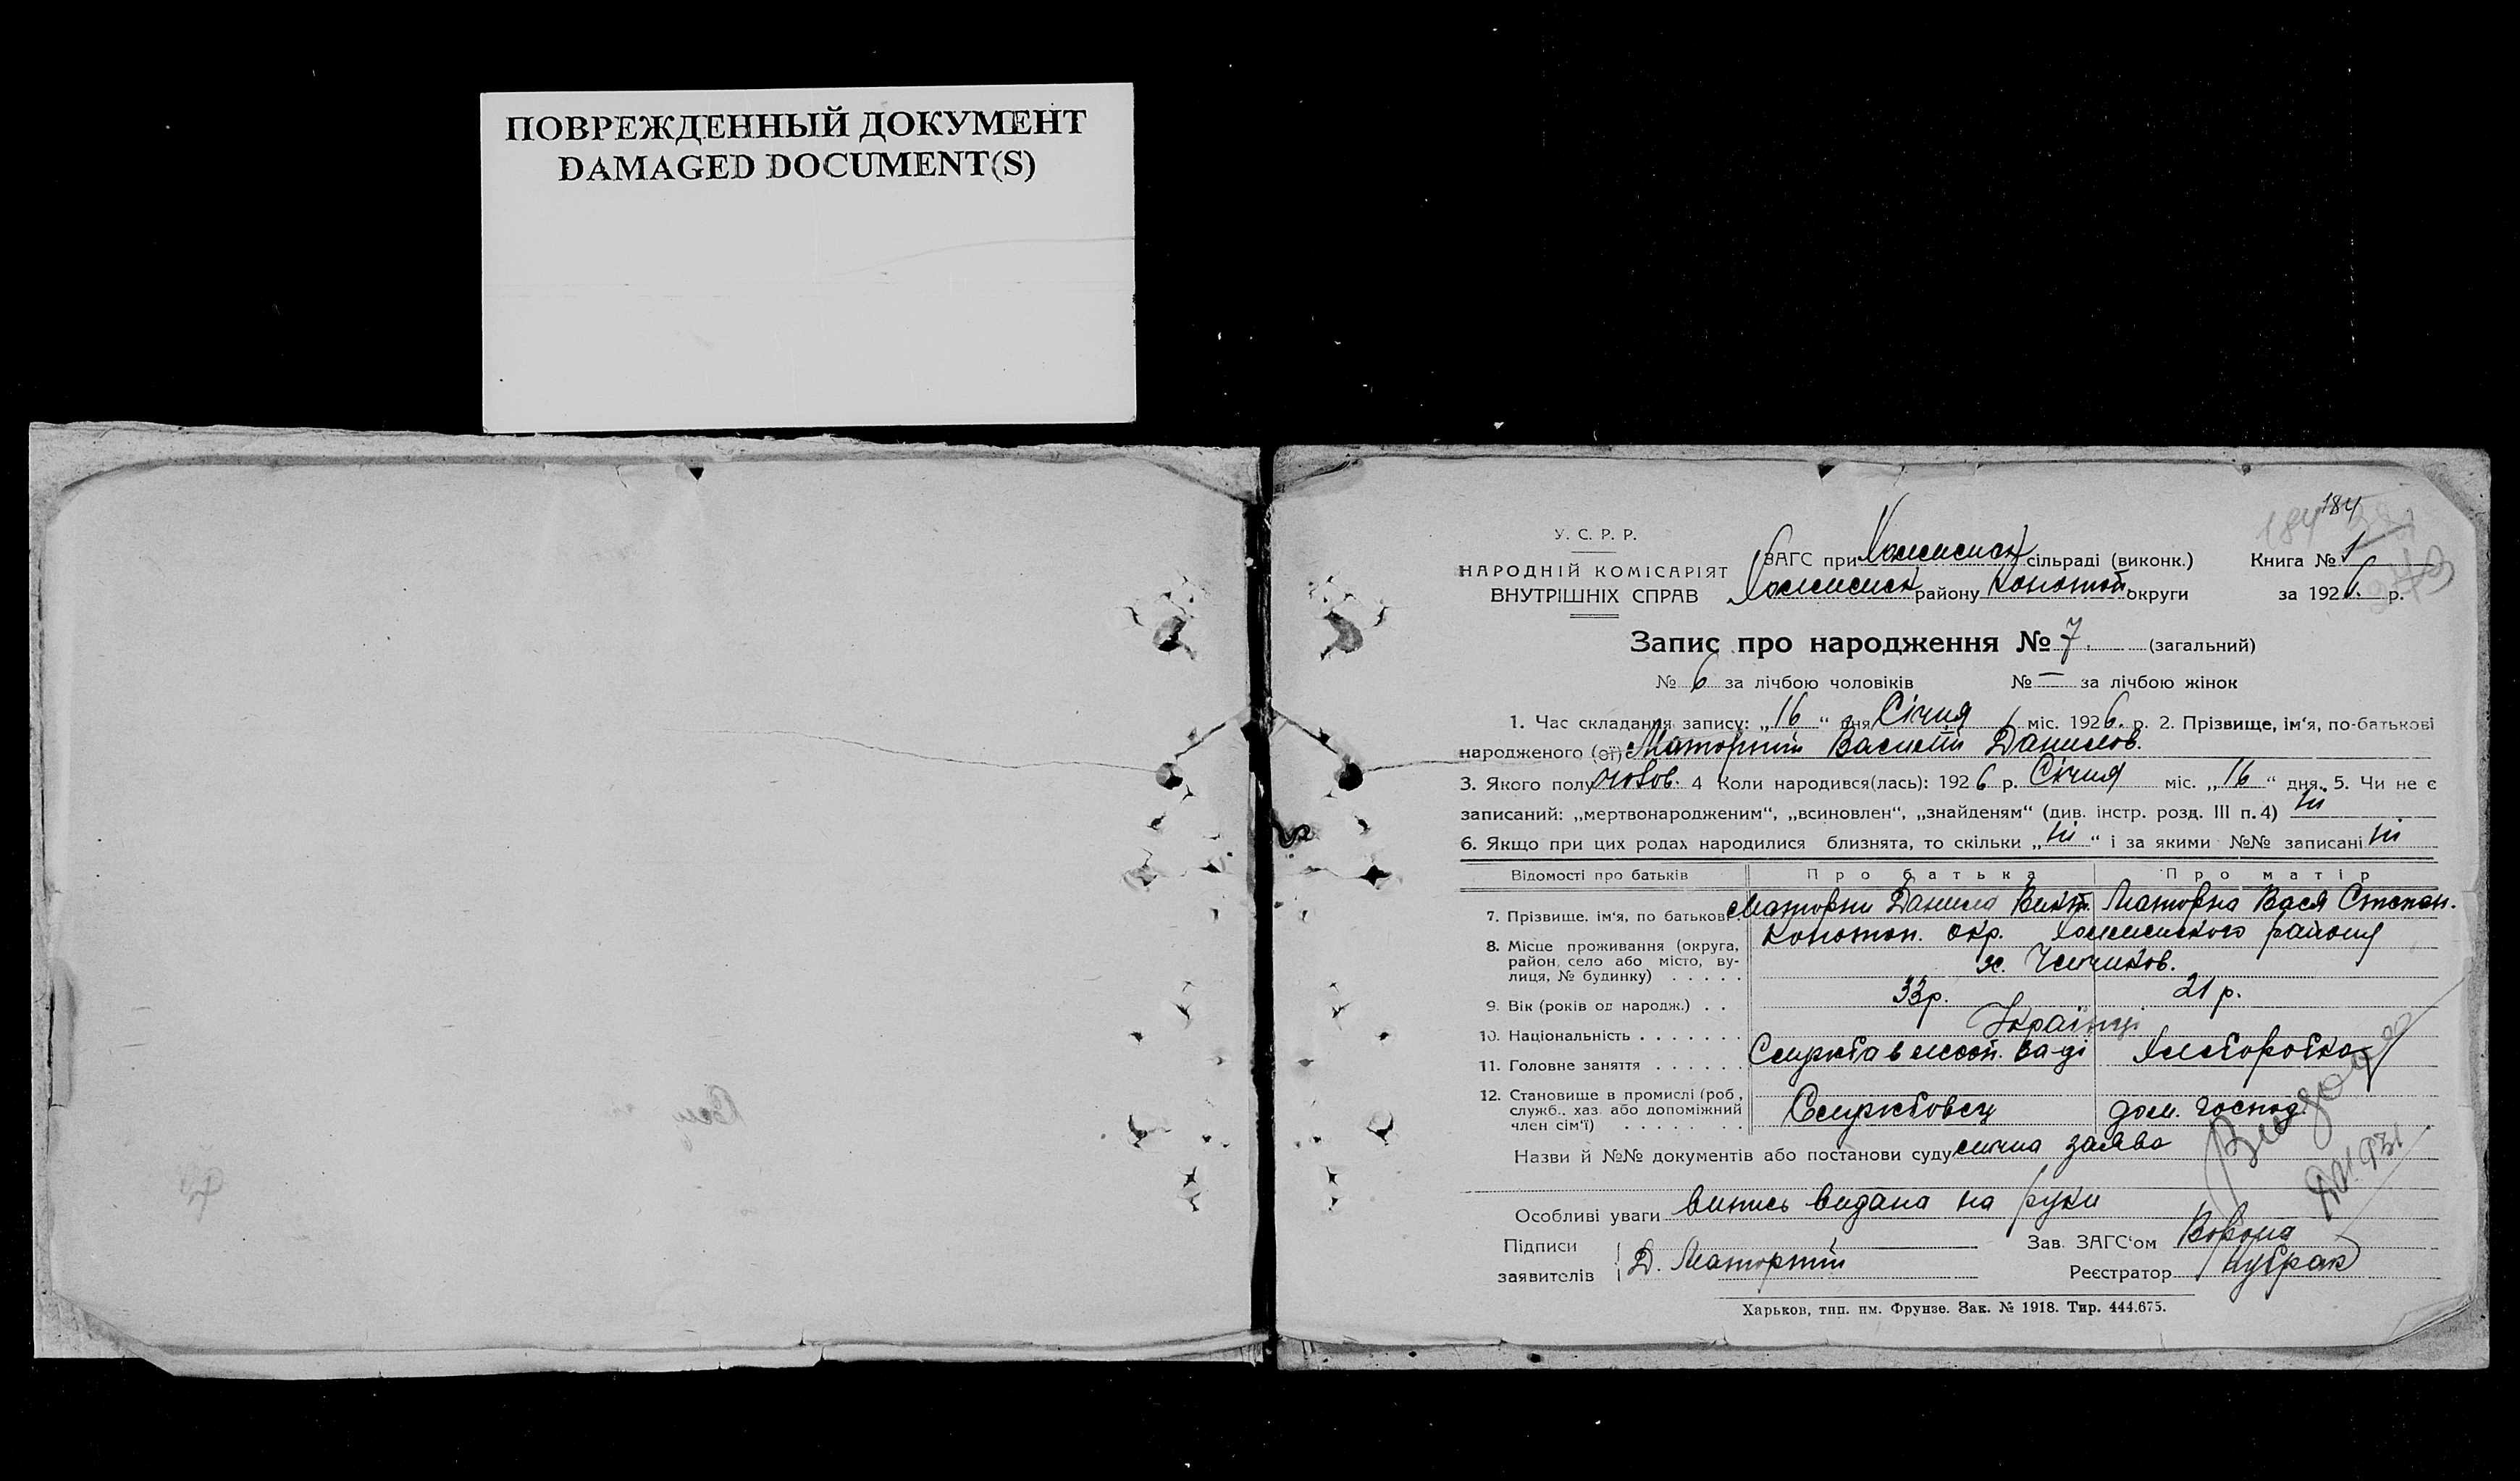 ПОВРЕЖДЕННЫЙ ДОКУМЕНТ
DAMAGED DOCUMENT(S)
184
184
У. С. Р. Р.
НАРОДНІЙ КОМІСАРІЯТ
ВНУТРІШНІХ СПРАВ
ЗАГС при сільраді (виконк.)
району Конотоп. округи
Книга № 1
за 1926. р.
Запис про народження № 7. (загальний)
№ 6 за лічбою чоловіків № — за лічбою жінок
1. Час складання запису: „16“ дня Січня міс. 1926. р. 2. Прізвище, ім‘я, по-батькові
народженого (ої) Маторний Василій Данилов.
3. Якого полу чолов. 4 Коли народився(лась): 1926 р. Січня міс. „16“ дня. 5. Чи не є
записаний: „мертвонародженим“, „всиновлен“, „знайденям“ (див. інстр. розд. III п. 4) ні
6. Якщо при цих родах народилися близнята, то скільки „ні“ і за якими №№ записані ні
Відомості про батьків Про батька Про матір
7. Прізвище, ім‘я, по батькові Маторний Данило Маторна Вася Степан.
8. Місце проживання (округа, район, село або місто, вулиця, № будинку) Конотоп. окр. району
х.
9. Вік (років од народж.) 33р. 21 р.
10. Національність Українці
11. Головне заняття Служба в
12. Становище в промислі (роб., служб., хаз. або допоміжний член сім‘ї) Службовец дом. господ.
Назви й №№ документів або постанови суду заява
Особливі уваги випись видана на руки
Підписи заявителів Д. Маторний
Зав. ЗАГС‘ом Ворона
Реєстратор
Харьков, тип. им. Фрунзе. Зак. № 1918. Тир. 444.675.